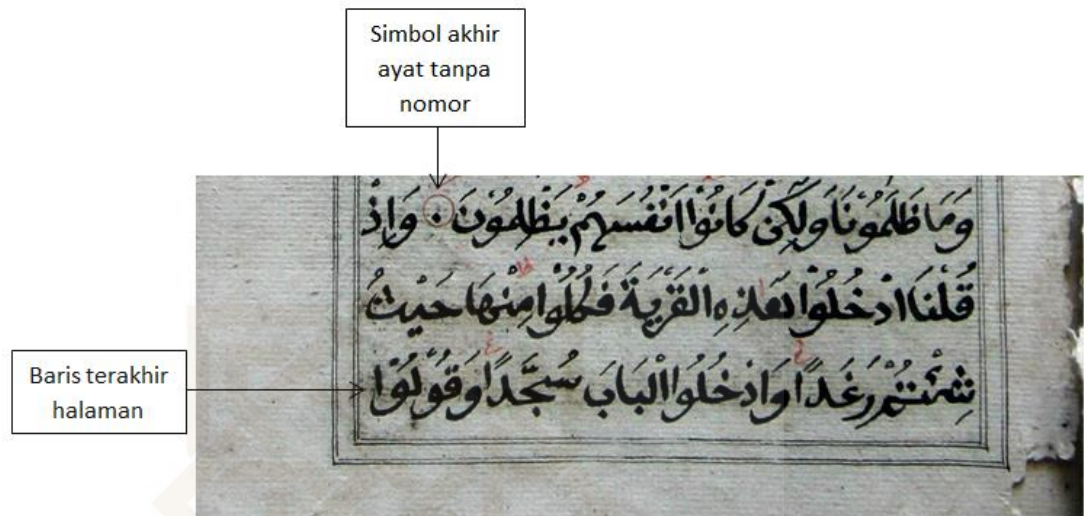 Simbol akhir
ayat tanpa
nomor
وَمَا ظَلَمُوْنَا وَلٰكِنْ كَانُوْا اَنْفُسَهُمْ يَظْلِمُوْنَ ۝ وَاِذْ
قُلْنَا ادْخُلُوْا هٰذِهِ الْقَرْيَةَ فَكُلُوْا مِنْهَا حَيْثُ
Baris terakhir
halaman
شِئْتُمْ رَغَدًا وَادْخُلُوا الْبَابَ سُجَّدًا وَقُوْلُوْا